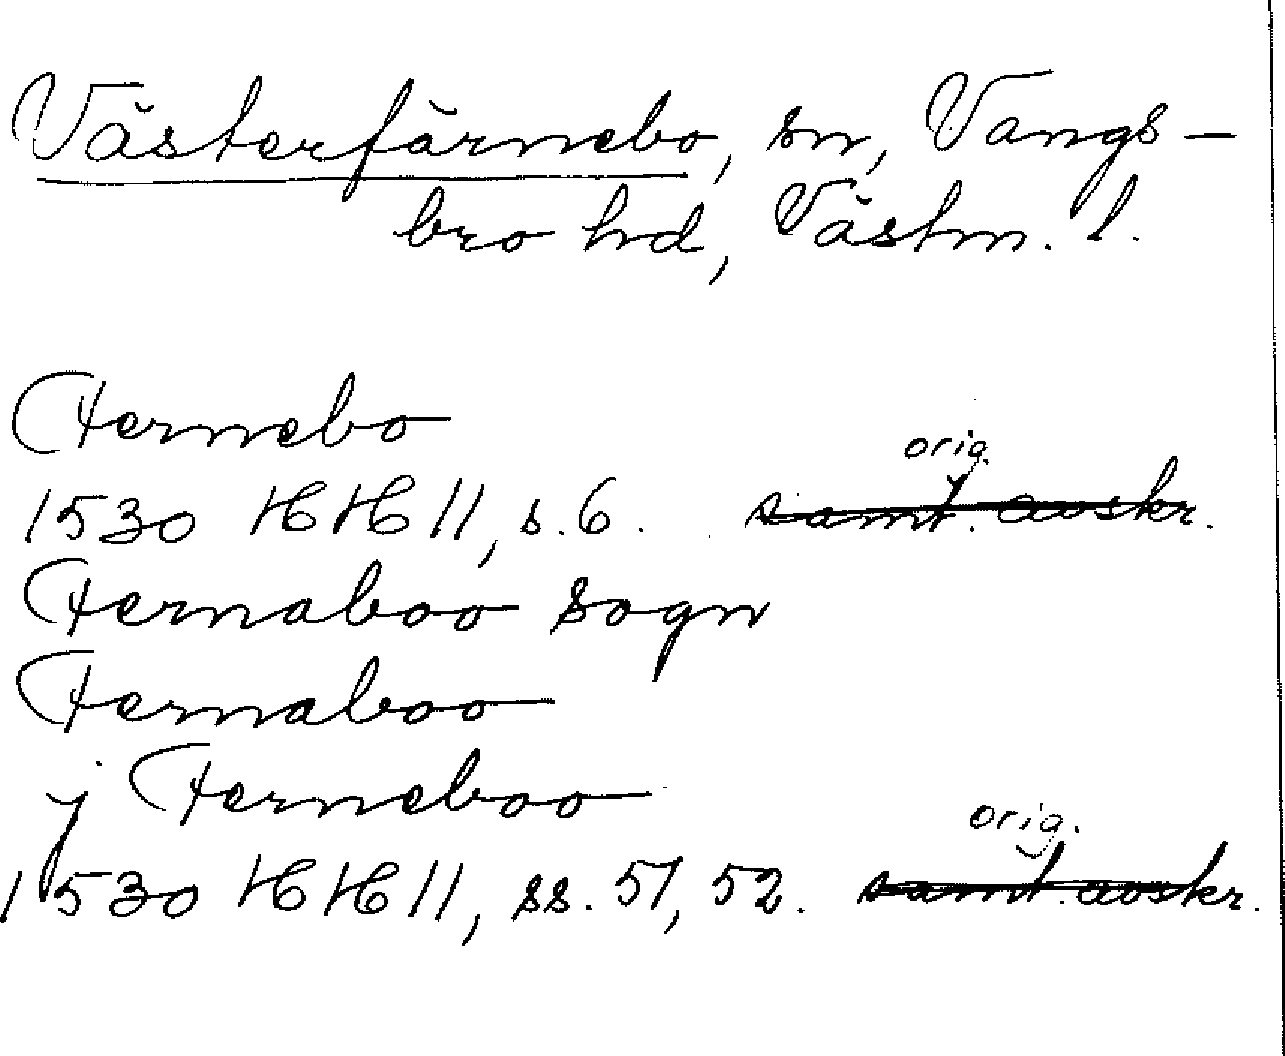 Västerfärnebo, sn, Vangs-
bro hd, Västm. l.
Fernebo
orig.
1530 HH 11, s. 6. samt. avskr.
Fernaboo sogn
Fernaboo
j Ferneboo
orig.
1530 HH 11, ss. 51, 52. samt. avskr.